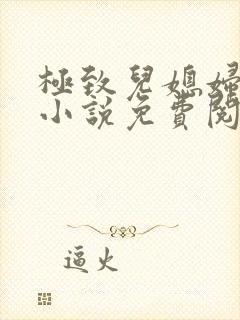 極致兒媳婦
小說免費閱
逼火